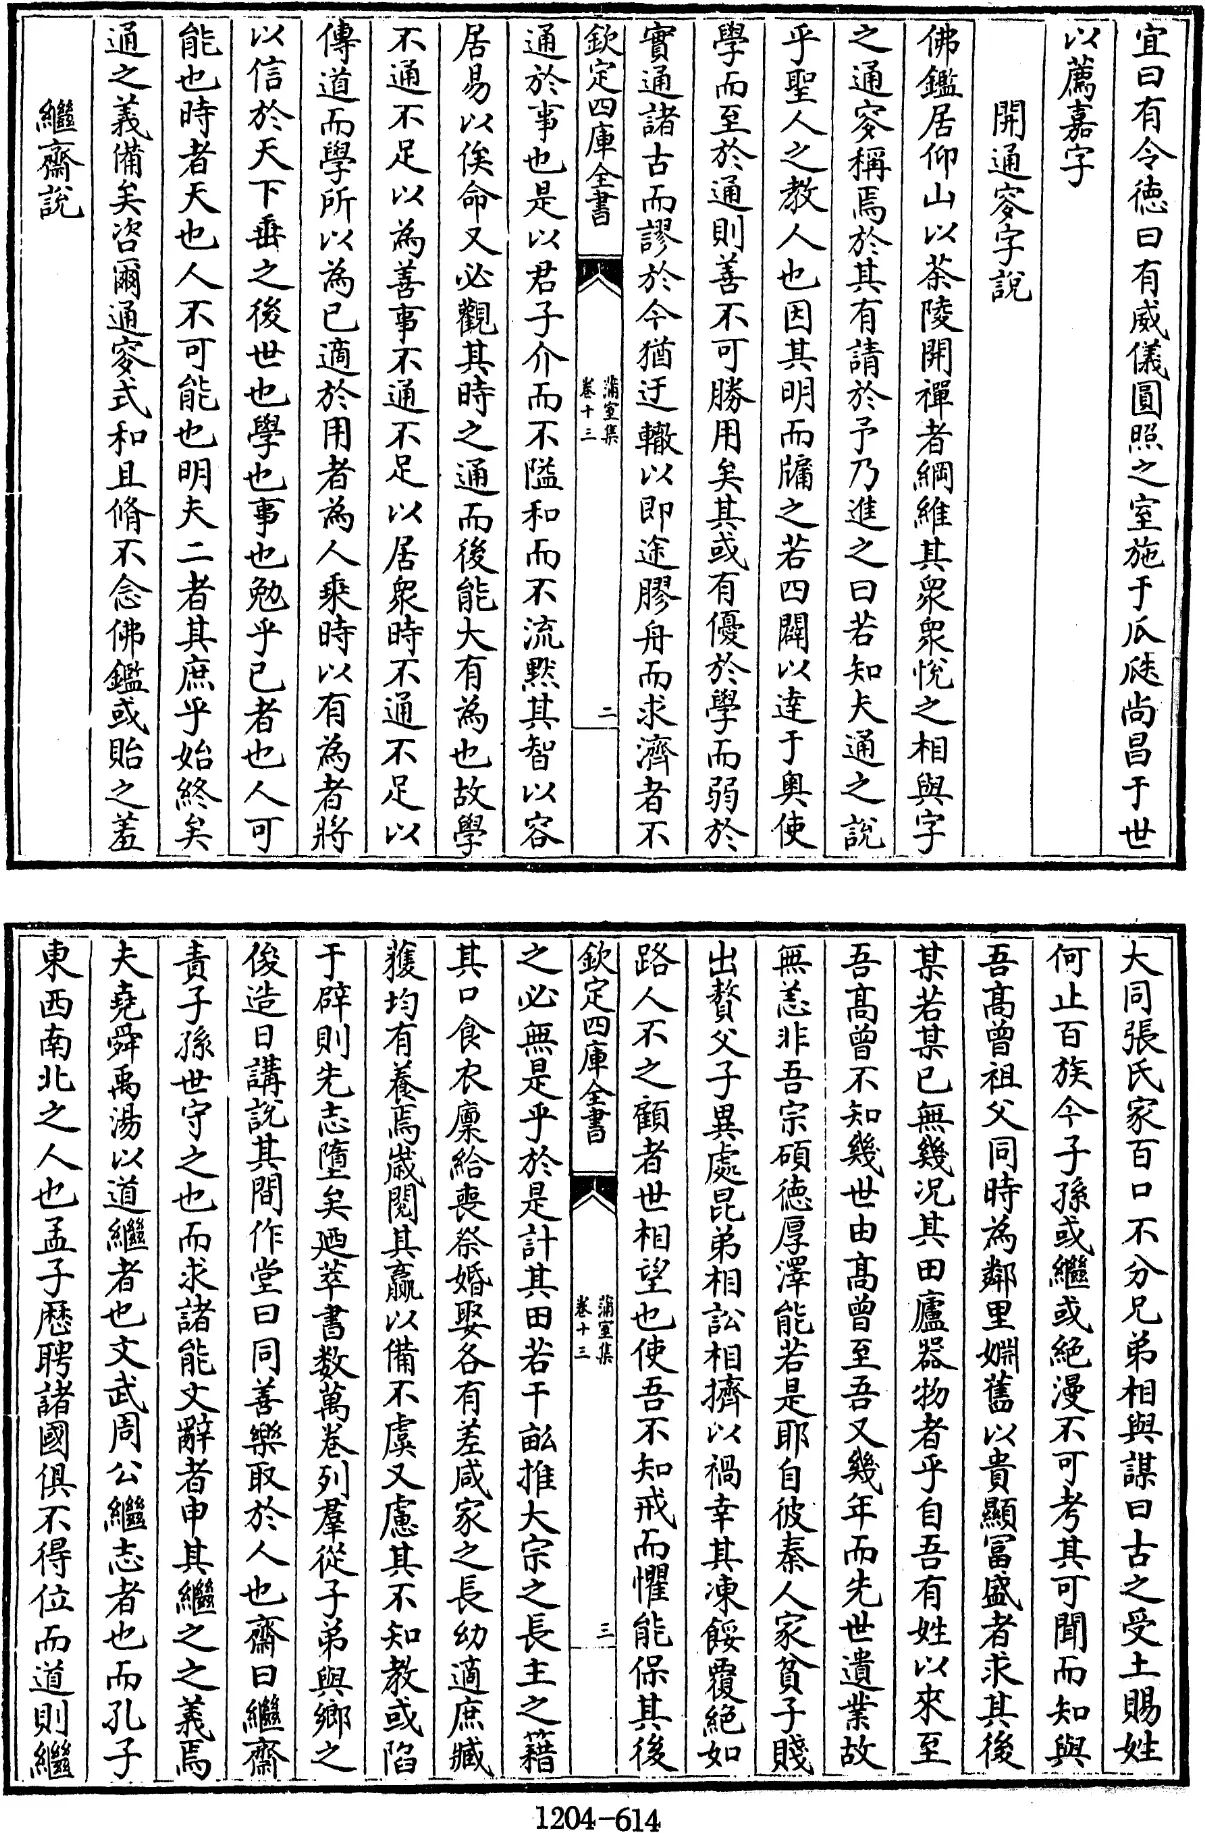 宜曰有令徳曰有威儀圓照之室施于瓜瓞尚昌于世
以薦嘉字
開通䆫字說
佛鑑居仰山以茶陵開禪者綱維其衆衆悅之相與字
之通䆫稱焉於其有請於予乃進之曰若知夫通之說
乎聖人之教人也因其明而牖之若四闢以達于奥使
學而至於通則善不可勝用矣其或有優於學而弱於
實通諸古而謬於今猶迂轍以即途膠舟而求濟者不
欽定四庫全書
蒲室集
卷十三
二
通於事也是以君子介而不隘和而不流黙其智以容
居易以俟命又必觀其時之通而後能大有為也故學
不通不足以為善事不通不足以居衆時不通不足以
傳道而學所以為已適於用者為人乘時以有為者將
以信於天下垂之後世也學也事也勉乎已者也人可
能也時者天也人不可能也明夫二者其庶乎始終矣
通之義備矣咨爾通䆫式和且脩不念佛鑑或貽之羞
繼齋說
大同張氏家百口不分兄弟相與謀曰古之受土賜姓
何止百族今子孫或繼或絶漫不可考其可聞而知與
吾髙曾祖父同時為鄰里婣舊以貴顯冨盛者求其後
某若某已無幾况其田廬器物者乎自吾有姓以來至
吾髙曾不知幾世由髙曾至吾又幾年而先世遺業故
無恙非吾宗碩徳厚澤能若是耶自彼秦人家貧子賤
出贅父子異處昆弟相訟相擠以禍幸其凍餒覆絶如
路人不之顧者世相望也使吾不知戒而懼能保其後
欽定四庫全書
蒲室集
卷十三
三
之必無是乎於是計其田若干畝推大宗之長主之籍
其口食衣廩給喪祭婚娶各有差咸家之長幼適庶臧
獲均有養焉歳閲其羸以備不虞又慮其不知教或陷
于辟則先志墮矣廼萃書数萬卷列羣從子弟與鄉之
俊造日講說其間作堂曰同善樂取於人也齋曰繼齋
責子孫世守之也而求諸能文辭者申其繼之之義焉
夫堯舜禹湯以道繼者也文武周公繼志者也而孔子
東西南北之人也孟子歴聘諸國俱不得位而道則繼
1204-614